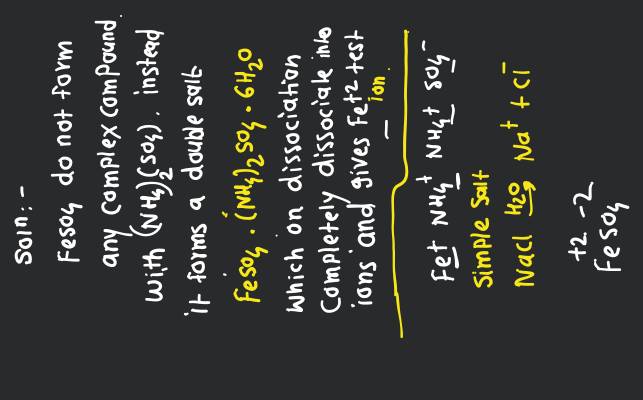 Soln:-
FeSO4 do not form
any complex compound.
with (NH4)2(SO4). instead
it forms a double salt
FeSO4 . (NH4)2 SO4 . 6H2O
Which on dissociation
Completely dissociate into
ions and gives Fe+2 test
ion.
Fe+ NH4+ NH4+ SO4-
Simple Salt
NaCl H2O → Na+ + Cl-
+2 -2
FeSO4